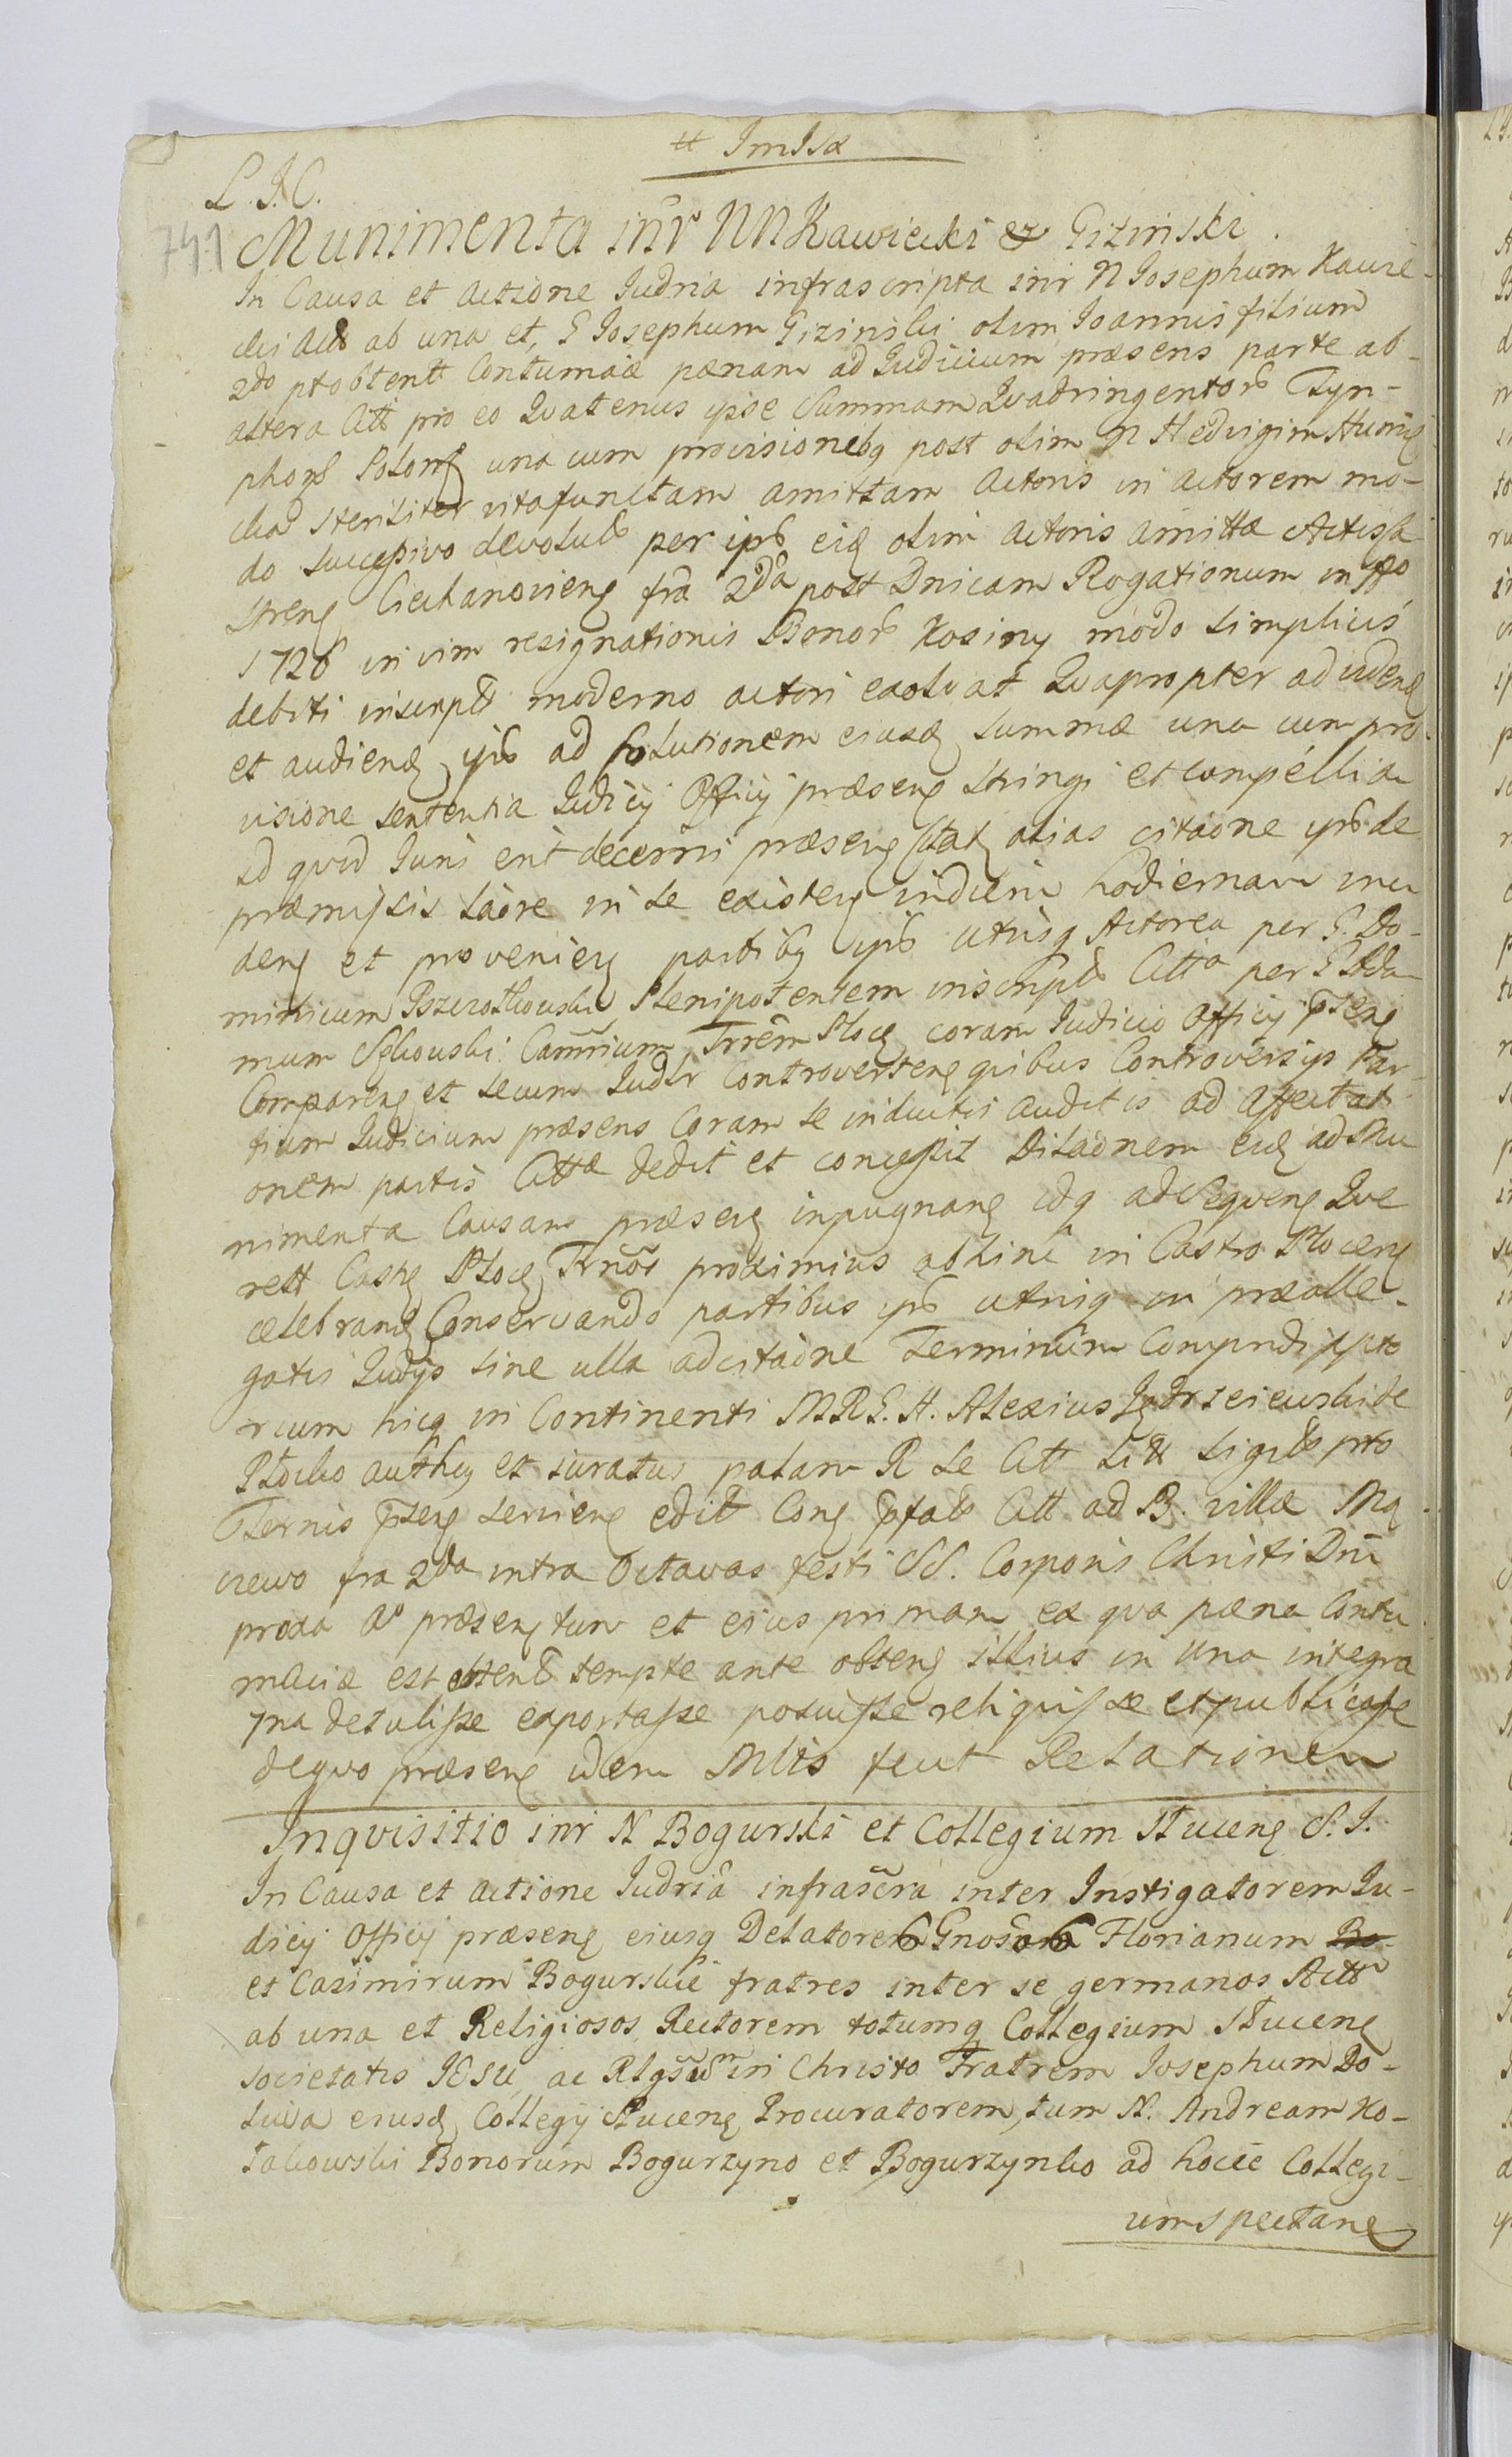 tt ImIsa
L.J.C.
741
Munimenta inr NN Kawiecki et Gizinski.
In Causa et Actione Judria infrascripta inr N Josephum Kawie-
cki Act ab una et, G Josephum Gizinski olim Joannis filium
2do pto obtent Contumaciæ pænam ad Judicium præsens parte ab
altera Citt pro eo Quatenus ipse Summam Quadringentor Tyn-
phor Polon una cum provisionebq post olim N Hedvigim
steriliter vitafunctam amittam Actoris in Actorem mo-
do successivo devolut per ips eiq olim Actoris amittæ Actis Ca
streng Ciechanovieng fra 2da post Dnicam Rogationum in
1726 in vim resignationis Bonor Kosiny modo simplicis
debiti inscript moderno actori exolvat Quapropter ad videng
et audieng ips ad solutionem eiusq summæ una cum pro-
visione sententia Judicy Officy præseng stringi et compelli ac
id quid Juris erit decerni præseng citat alias citaone ips de
præmissis laore in se existeng indiem hodiernam inci
deng et provenieng partibq ips utrisq Actorea per G. Do-
minicum Plenipotentem inscript Citta per G Ada
mum Camrium Trrem Ploceg coram Judicio Officy pseng
Compareng et secum Judlr Controverteng quibus Controversys Par-
tium Judicium præsens Coram se inductis auditis ad Affectati
onem partis Cittæ dedit et concessit Dilaonem eiq ad Mu
nimenta Causam præseng inpugnang idq ad Seqveng Que
rell Castr Ploceg Trnos proximius abhinc in Castro Ploceng
celebrang Conservando partibus ips utrisq in prealle-
gatis Judys sine ulla adcitaone Terminum
rcum hicq in Continenti MRG. H. Alexius Jędrzeiewski de
Płocko auth et iuratus palam R se Citt Litt sigil pro
Ternis pseng servieng edit Cong Citt ad B. villæ Mą
cewo fra 2da intra Octavas festi SS. Corporis Christi Dni
proxa Ao præseng tum et eius primam ex qva pæna Contu
maciæ est obtent tempte ante obteng illius in una integra
7na detulisse exportasse posuisse reliquisse et publicasse
deqvo præseng idem Mlis fecit Relationem
Inqvisitio inr N Bogurski et Collegium Stuceng S.J.
In Causa et Actione Judria infrascra inter Instigatorem Ju-
dicy Officy præseng eiusq Delatores Gnosos Florianum Bo-
et Casimirum Bogurskie fratres inter se germanos Actt
ab una et Religiosos Rectorem totumq Collegium Stuceng
societatis JESU, ac Rlgsum in Christo Fratrem Josephum Do-
liwa eiusq Collegy Stuceng Procuratorem, tum N. Andream Ko-
takowski Bonorum Bogurzyno et Bogurzynko ad hocce Collegi-
um spectang